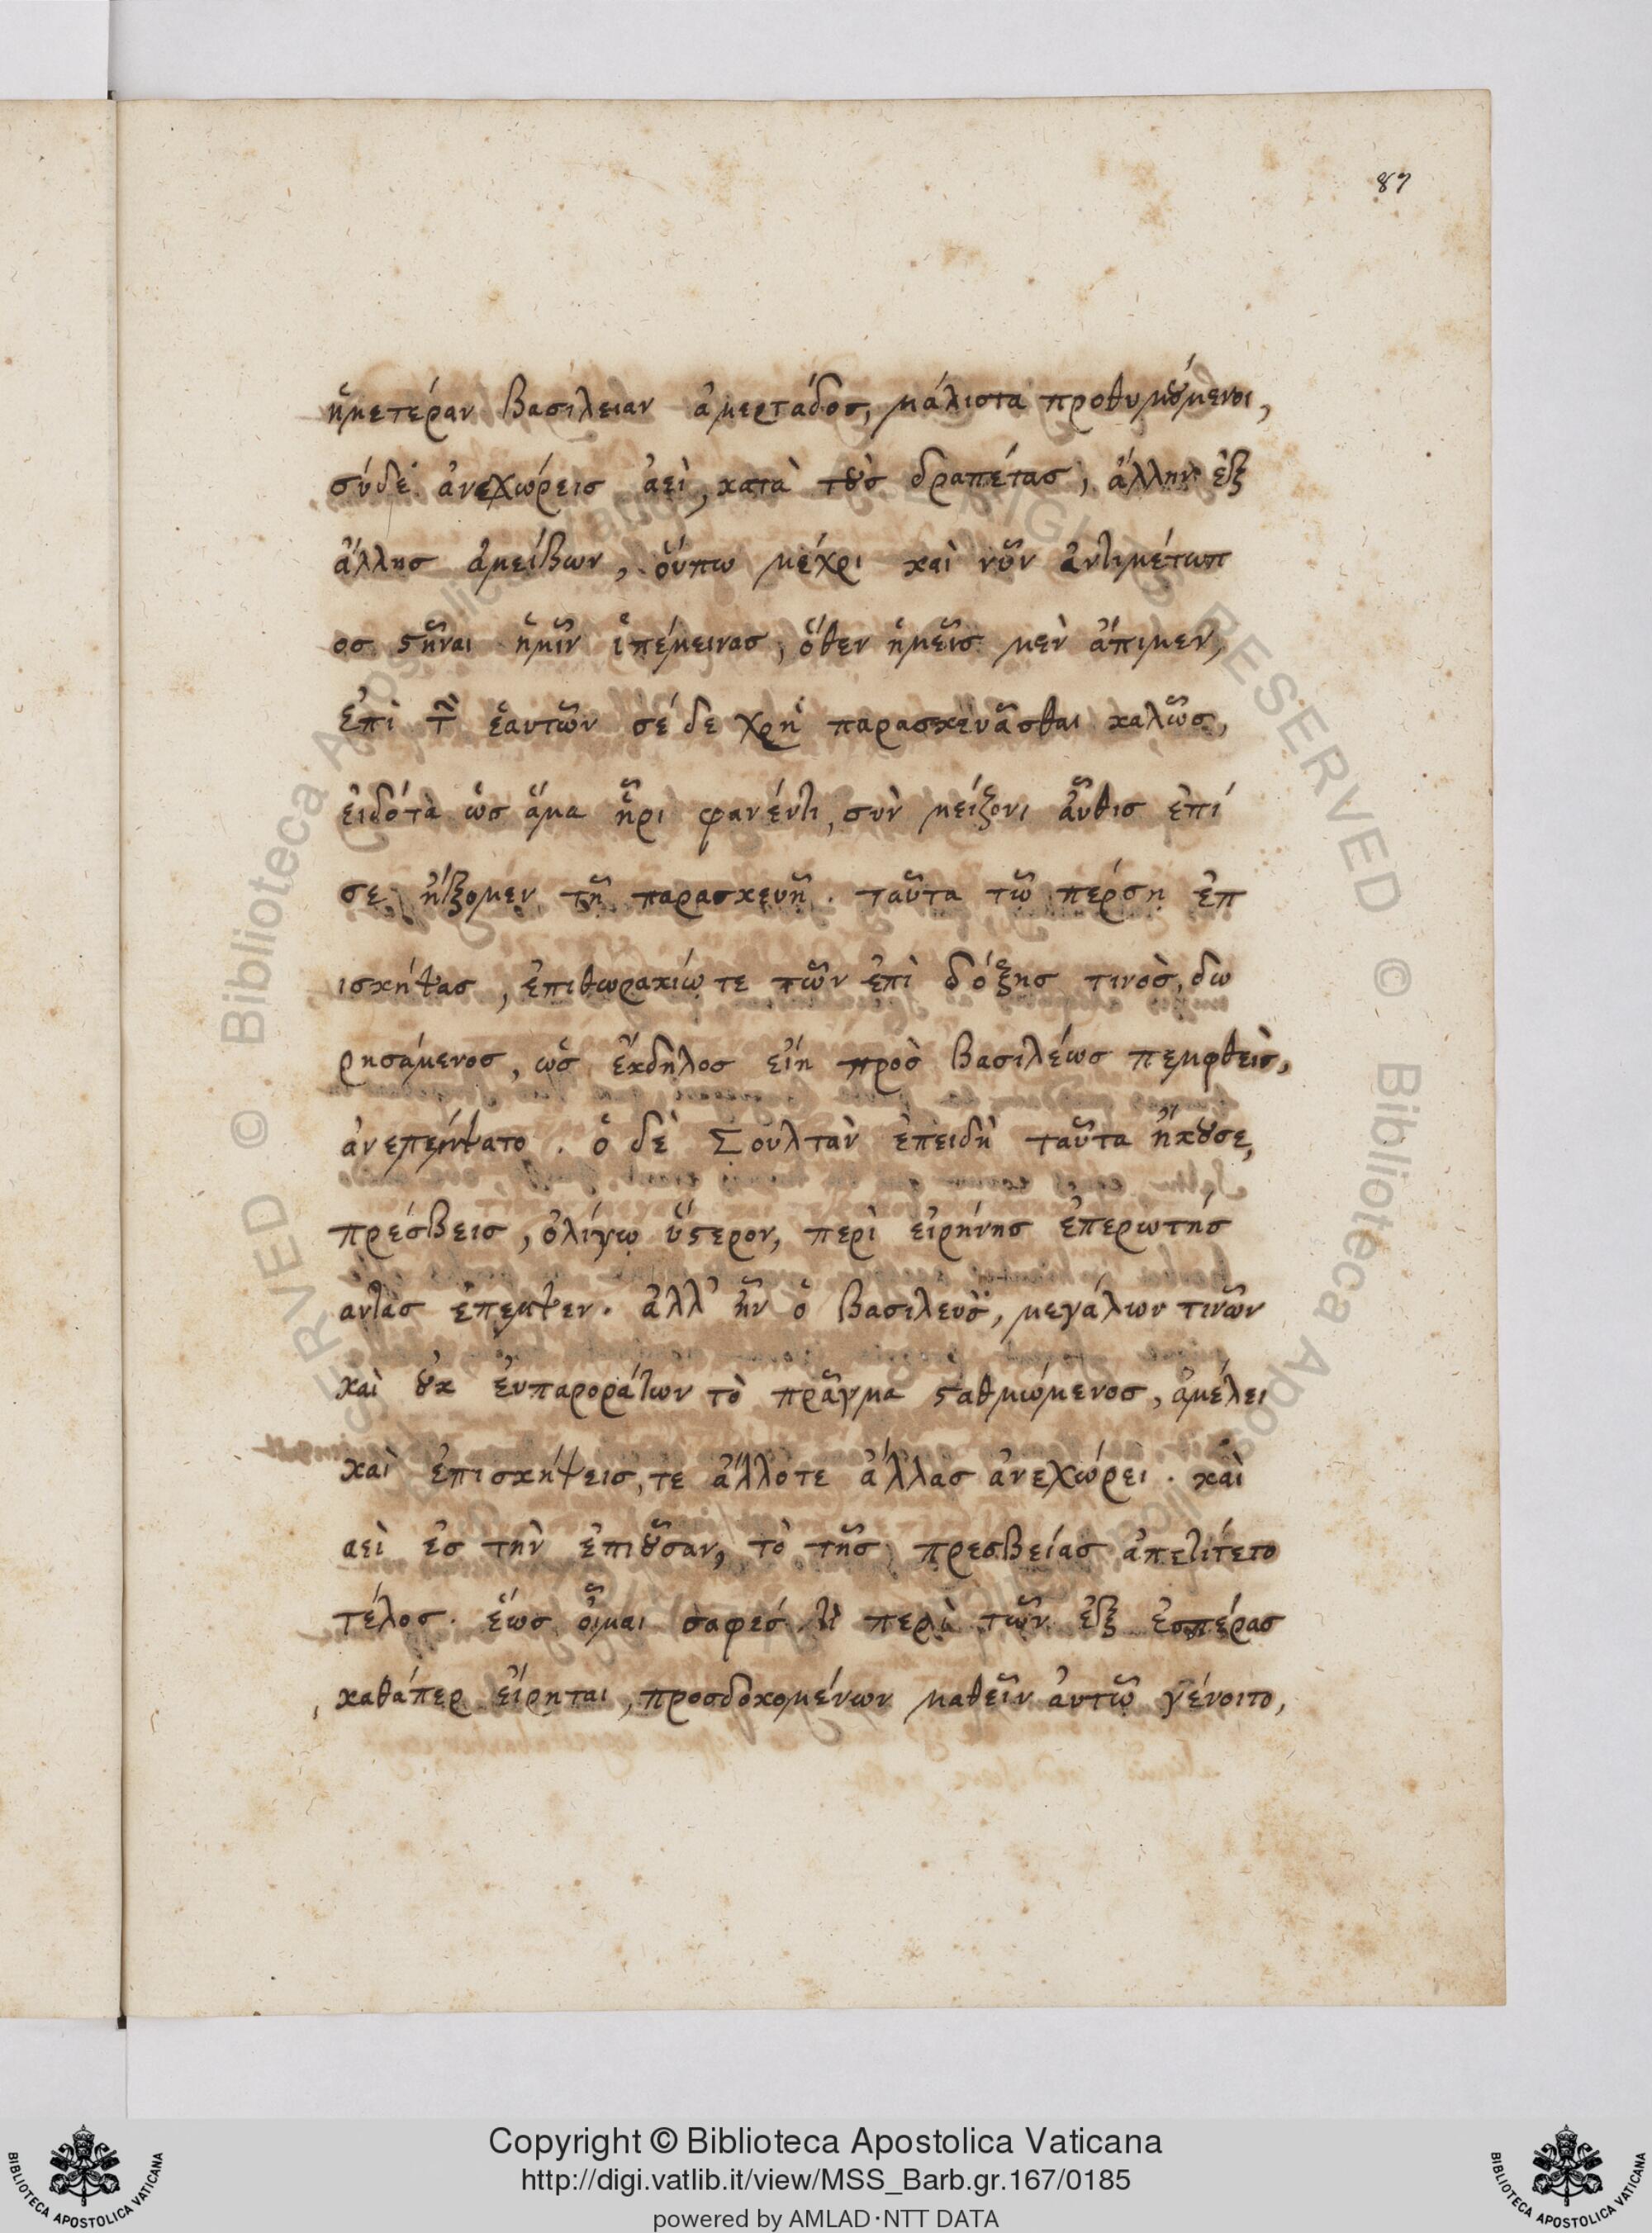 87
ἡμετέραν βασιλειαν ἀμερτάδος, μάλιστα προθυμούμενοι,
σύδε ἀνεχώρεισ ἀεὶ, κατὰ τοὺσ δραπέτασ, ἄλλην ἐξ
ἄλλησ ἀμείβων, οὔπω μέχρι καὶ νῦν ἀντιμέτωπ
οσ στῆναι ἡμῖν ὑπέμεινασ, ὅθεν ἡμεῖσ μὲν ἄπιμεν,
ἐπὶ τ ἑαυτῶν σέ δε χρὴ παρασκευᾶσθαι καλῶσ,
ειδότα ὡσ ἅμα ἦρι φανέντι, συν μείζονι αὖθισ ἐπί
σε ἥξομεν τῆ παρασκευῆ. ταῦτα τῶ πέρση ἐπ
ισκήψασ, ἐπιθωρακίω τε τῶν ἐπὶ δόξησ τινοσ, δω
ρησάμενοσ, ὡσ ἔκδηλοσ εἴη προσ βασιλέωσ πεμφθεισ,
ἀνεπέμψατο. ὁ δὲ Σουλτὰν ἐπειδὴ ταῦτα ἤκουσε,
πρέσβεισ, ὀλίγω ὕστερον, περὶ εἰρήνησ ἐπερωτήσ
αντασ ἔπεμψεν. ἀλλ' ἦν ὁ βασιλευσ, μεγάλων τινῶν
καὶ οὐκ ευπαροράτων τὸ πρᾶγμα σταθμώμενοσ, ἀμέλει
καὶ ἐπισκήψεισ, τε ἄλλοτε ἄλλασ ἀνεχώρει. καὶ
αεὶ ἐσ τὴν ἐπιοῦσαν, τὸ τῆσ πρεσβείασ ἀπετίτετο
τέλοσ. ἕωσ οἶμαι σαφεσ τι περὶ τῶν ἐξ ἑσπέρασ
καθάπερ εἴρηται, προσδοκομένων μαθεῖν ἀυτῶ γένοιτο,
Copyright © Biblioteca Apostolica Vaticana
http://digi.vatlib.it/view/MSS_Barb.gr.167/0185
powered by AMLAD·NTT DATA
BIBLIOTECA APOSTOLICA VATICANA
BIBLIOTECA APOSTOLICA VATICANA